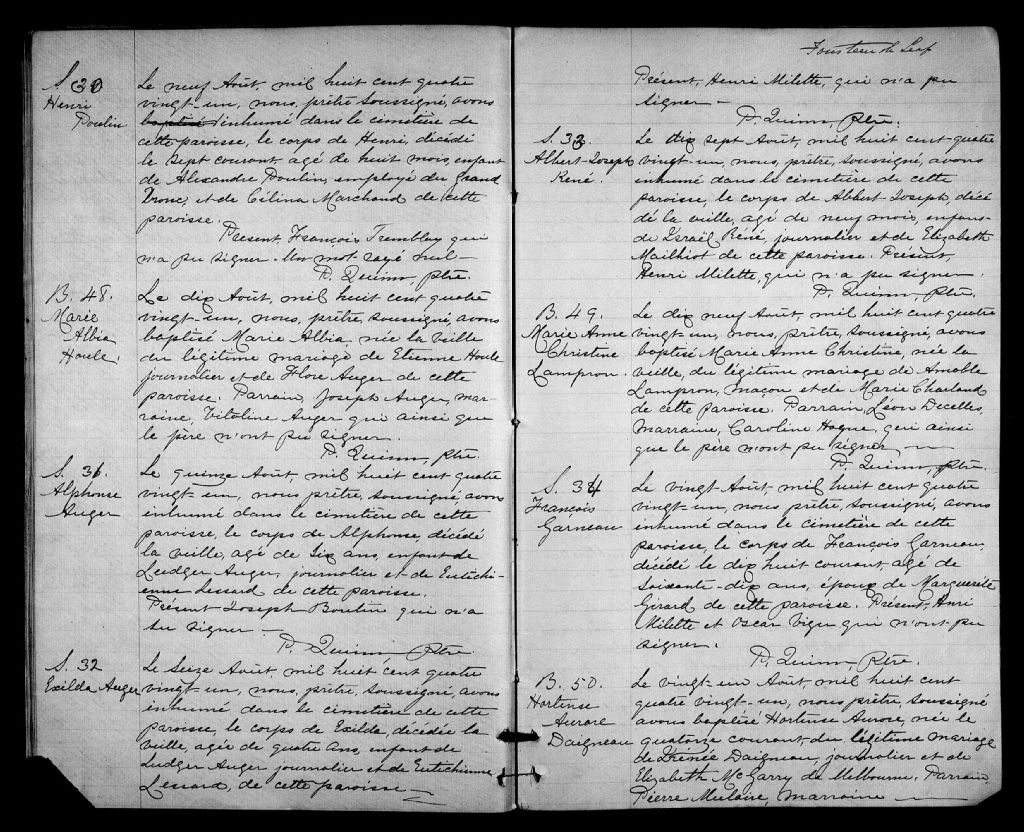 S. 30
Henri
Poulin
Le neuf Août, mil huit cent quatre
vingt-un, nous, prêtre soussigné, avons
baptisé inhumé dans le cimetière de
cette paroisse, le corps de Henri, décédé
le sept courant, agé de huit mois, enfant
de Alexandre Poulin, employé du Grand
Tronc, et de Célina Marchand de cette
paroisse.
Présent, François Tremblay qui
n'a pu signer. Un mot rayé nul-
P. Quinn, ptre.
B. 48.
Marie
Albia
Houle.
Le dix Août, mil huit cent quatre
vingt-un, nous, prêtre, soussigné, avons
baptisé Marie Albia, née la veille
du légitime mariage de Etienne Houle
journalier et de Flore Auger de cette
paroisse. Parrain, Joseph Auger, mar-
raine, Vitaline Auger qui ainsi que
le père n'ont pu signer.
P. Quinn, ptre.
S. 31.
Alphonse
Auger
Le quinze Août, mil huit cent quatre
vingt-un, nous prêtre, soussigné, avons
inhumé dans le cimetière de cette
paroisse, le corps de Alphonse, décédé
la veille, agé de six ans, enfant de
Ludger Auger, journalier et de Eutichi-
enne Lessard de cette paroisse.
Présent Joseph Boutin qui n'a
su signer.
P. Quinn ptre.
S. 32
Exilda Auger
Le seize Août, mil huit cent quatre
vingt-un, nous, prêtre, soussigné, avons
inhumé dans le cimetière de cette
paroisse, le corps de Exilda, décédée la
veille, agée de quatre ans, enfant de
Ludger Auger journalier et de Eutichienne
Lessard, de cette paroisse
Fourteenth Leaf
Présent, Henri Milette, qui n'a pu
signer
P. Quinn, ptre.
S. 33
Albert-Joseph
René.
Le dix sept Août, mil huit cent-quatre
vingt-un, nous, prêtre, soussigné, avons
inhumé dans le cimetière de cette
paroisse, le corps de Albert-Joseph, décé
dé la veille, agé de neuf mois, enfant
de Israël René, journalier et de Elizabeth
Mailhiot de cette paroisse. Présent,
Henri Milette, qui n'a pu signer.
P. Quinn, ptre.
B. 49.
Marie Anne
Christine
Lampron.
Le dix neuf Août, mil huit cent quatre
vingt-un, nous, prêtre, soussigné, avons
baptisé Marie Anne Christine, née la
veille, du légitime mariage de Amable
Lampron, maçon et de Marie Charland
de cette paroisse. Parrain, Léon Decelles,
Marraine, Caroline Hogue, qui ainsi
que le père n'ont pu signer
P. Quinn, ptre.
S. 34
François
Garneau
Le vingt-Août, mil huit cent quatre
vingt-un, nous, prêtre, soussigné, avons
inhumé dans le cimetière de cette
paroisse, le corps de François Garneau,
décédé le dix huit courant, agé de
soixante-dix ans, époux de Marguerite
Girard de cette paroisse. Présent, Henri
Milette et Oscar Viger qui n'ont pu
signer.
P. Quinn, Ptre.
B. 50.
Hortense
Aurore
Daigneau
Le vingt-un Août, mil huit cent
quatre vingt-un, nous prêtre, soussigné
avons baptisé Hortense Aurore, née le
quatorze courant, du légitime mariage
de Irénée Daigneau, journalier et de
Elizabeth McGarry de Melbourne. Parrain,
Pierre Mulaire, Marraine